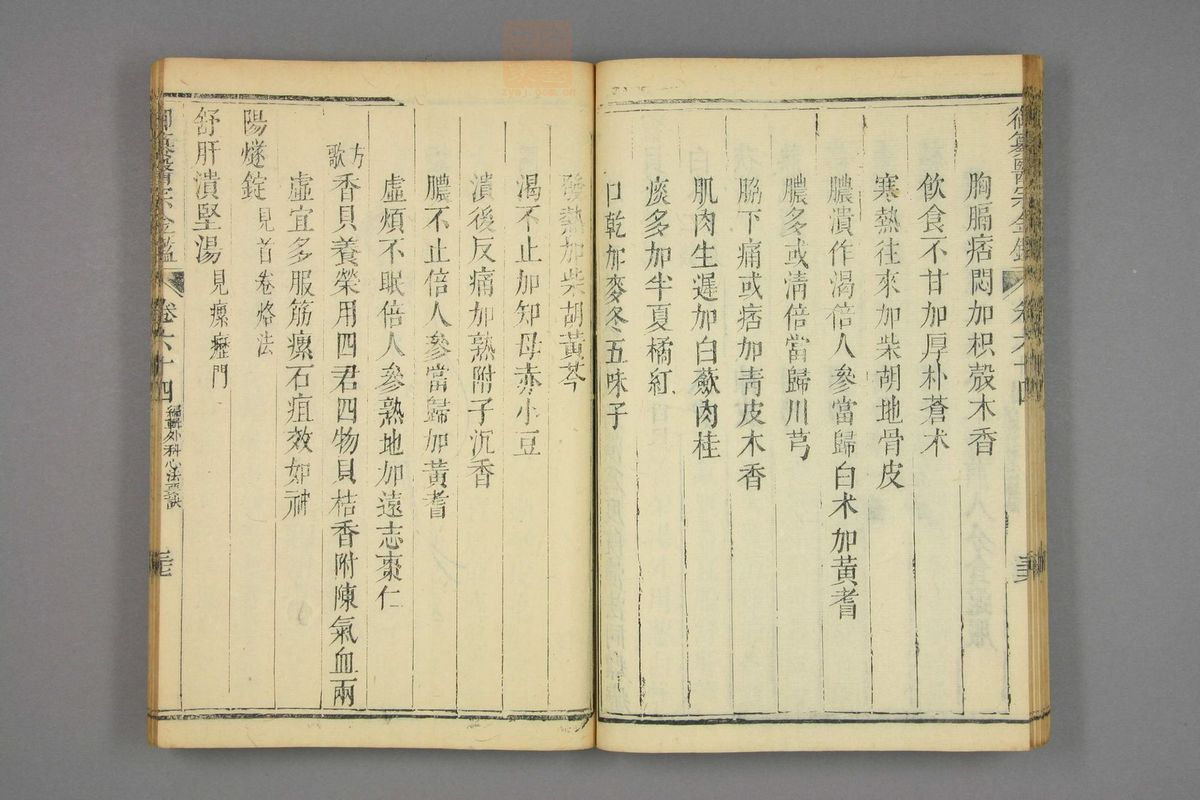 胸膈痞悶加枳殼木香
飲食不甘加厚朴蒼朮
寒熱往來加柴胡地骨皮
膿潰作渴倍人參當歸白朮加黃耆
膿多或清倍當歸川芎
脇下痛或痞加青皮木香
肌肉生遲加白蘞肉桂
痰多加半夏橘紅
口乾加麥冬五味子
發熱加柴胡黃芩
渴不止加知母赤小豆
潰後反痛加熟附子沉香
膿不止倍人參當歸加黃耆
虛煩不眠倍人參熟地加遠志棗仁
方歌 香貝養榮用四君四物貝桔香附陳氣血兩
虛宜多服筋瘰石疽效如神
陽燧錠 見首卷烙法
舒肝潰堅湯 見瘰癧門
御纂醫宗金鑑 卷六十四 編輯外科心法要訣